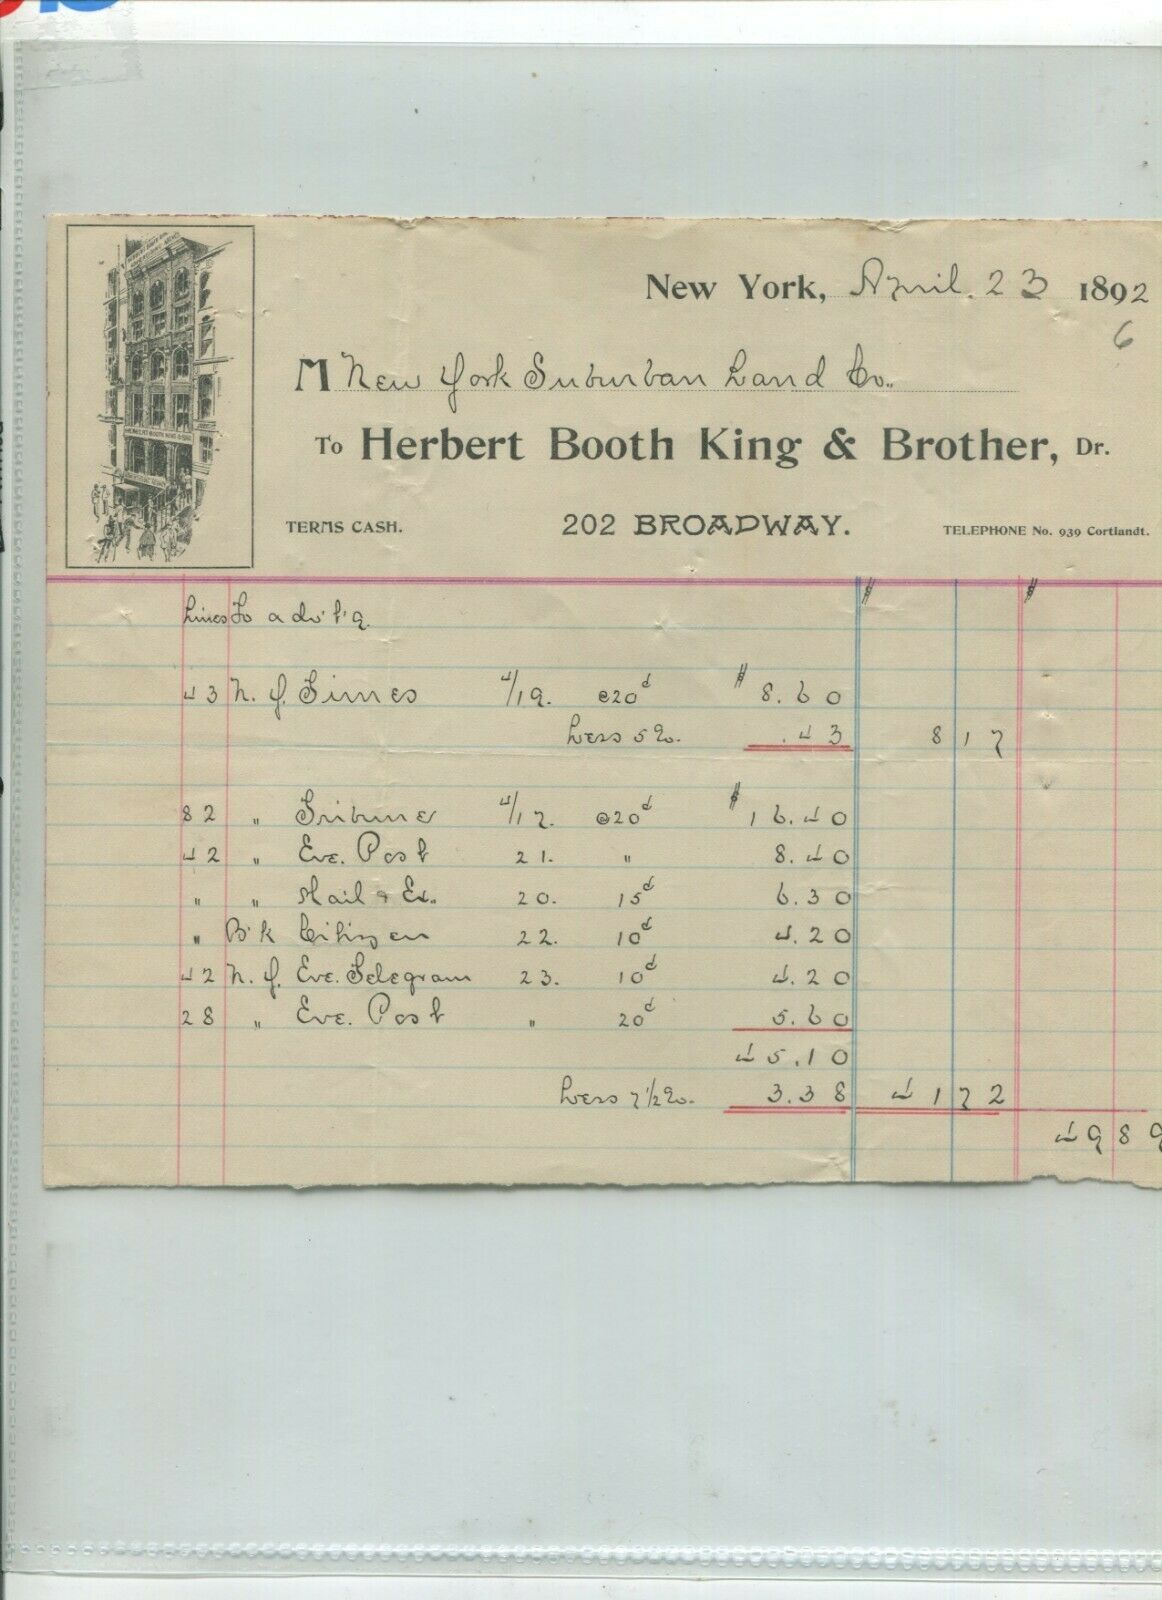 New York, April. 23 1892
6
M New York Suburban Land Co.
To Herbert Booth King & Brother, Dr.
TERMS CASH. 202 BROADWAY. TELEPHONE No. 939 Cortlandt.
Lines To adv't'g. $ $
43 N. Y. Times 4/19. @20¢ $ 8.60
Less 5%. .43 8 17
82 " Tribune 4/17. @20¢ $ 16.40
42 " Eve. Post 21. " 8.40
" " Mail & Ex. 20. 15¢ 6.30
" B'k Citizen 22. 10¢ 4.20
42 N. Y. Eve. Telegram 23. 10¢ 4.20
28 " Eve. Post " 20¢ 5.60
45.10
Less 7 1/2%. 3.38 41 72
49 89